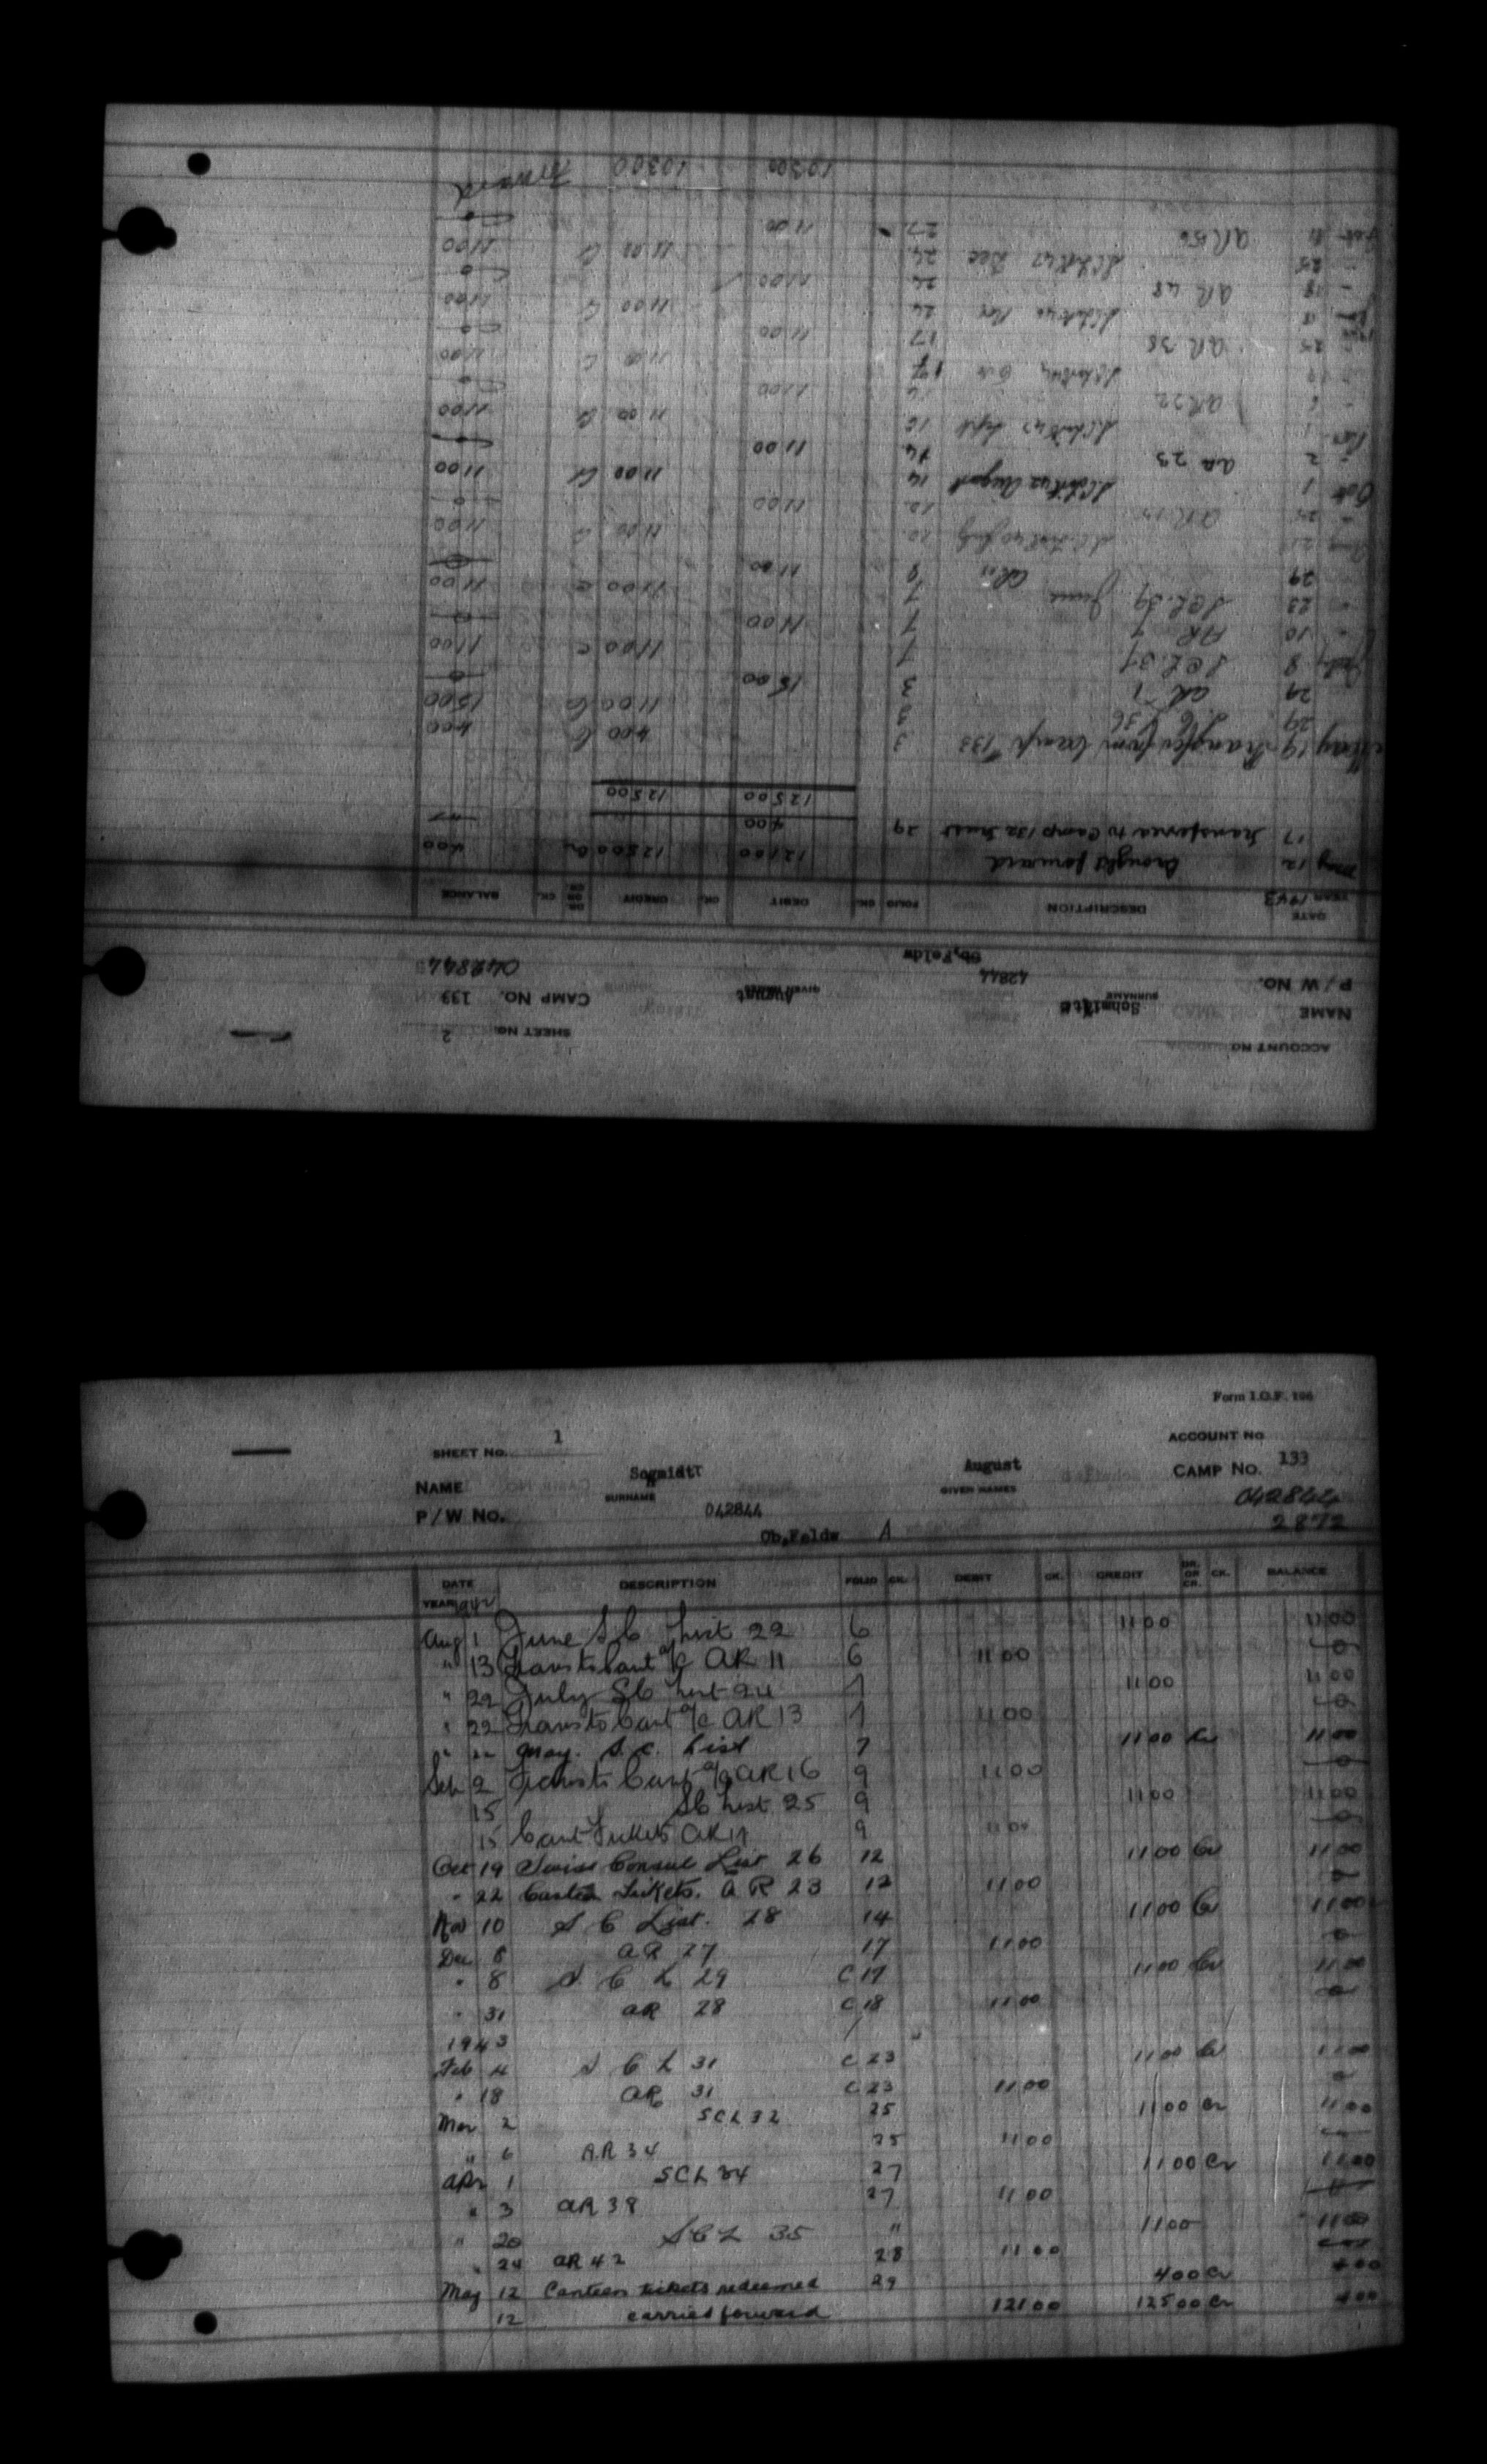 Form I.O.F. 106
SHEET NO. 1 ACCOUNT NO
NAME August CAMP NO. 133
SURNAME GIVEN NAMES
P/W NO. 042844 042844
Ob,Feldw A 2872
DATE DESCRIPTION FOLIO CK. DEBIT CK. CREDIT DR. OR CR. CK. BALANCE
YEAR 1942
Aug 1 June S C List 22 6 11 00 11 00
" 13 Trans to Cant a/c AR 11 6 11 00 0
" 22 July SC List 24 7 11 00 11 00
" 22 Trans to Cant a/c AR 13 7 11 00 0
" 22 May. S. C. List 7 11 00 Cr 11 00
Sep 2 Trans to Cant a/c AR 16 9 11 00 0
15 SC List 25 9 11 00 11 00
15 Cant Tickets AR 17 9 11 00 0
Oct 19 Swiss Consul List 26 12 11 00 Cr 11 00
" 22 Tickets. A R 23 12 11 00 0
Nov 10 S C List. 28 14 11 00 Cr 11 00
Dec 8 AR 27 17 11 00 0
" 8 S C L 29 C 17 11 00 Cr 11 00
" 31 AR 28 C 18 11 00 0
1943
Feb 4 S C L 31 C 23 11 00 Cr 11 00
" 18 AR 31 C 23 11 00 0
Mar 2 SCL 32 25 11 00 Cr 11 00
" 6 A.R 34 25 11 00
Apr 1 SCL 34 27 11 00 Cr 11 00
" 3 AR 38 27 11 00
" 20 SCL 35 " 11 00 11 00
" 24 AR 42 28 11 00
May 12 Canteen tickets redeemed 29 4 00 Cr 4 00
12 carried forward 121 00 125 00 Cr 4 00
ACCOUNT NO SHEET NO. 2
NAME Schmidt August CAMP NO. 133
SURNAME GIVEN NAMES
P/W NO. 42844 042844
Ob,Feldw
DATE DESCRIPTION FOLIO CK. DEBIT CK. CREDIT DR. OR CR. CK. BALANCE
YEAR 1943
May 12 Brought forward 121 00 125 00 Cr 4 00
17 Transferred to Camp 132 Trust 29 4 00
125 00 125 00
May 19 Transfer from Camp 133 3 4 00 C 4 00
29 36 3 11 00 C 15 00
29 AR 1 3 15 00 0
July 8 SCL. 37 7 11 00 C 11 00
" 10 AR 7 11 00 0
" 23 SCL. 39 June 7 11 00 C 11 00
29 AR 11 8 11 00 0
Aug 21 July 10 11 00 C 11 00
" AR 12 11 00 0
Oct 1 August 14 11 00 Cr 11 00
" 2 AR 23 14 11 00
Nov 1 Sept 16 11 00 C 11 00
" AR 16 11 00 0
" Oct 17 11 00 C 11 00
" 25 AR 38 17 11 00 0
Nov 24 11 00 C 11 00
" 18 AR 48 24 11 00 0
" 25 Dec 24 11 00 C 11 00
Feb 11 AR 50 27 11 00 0
103 00 103 00 Forward